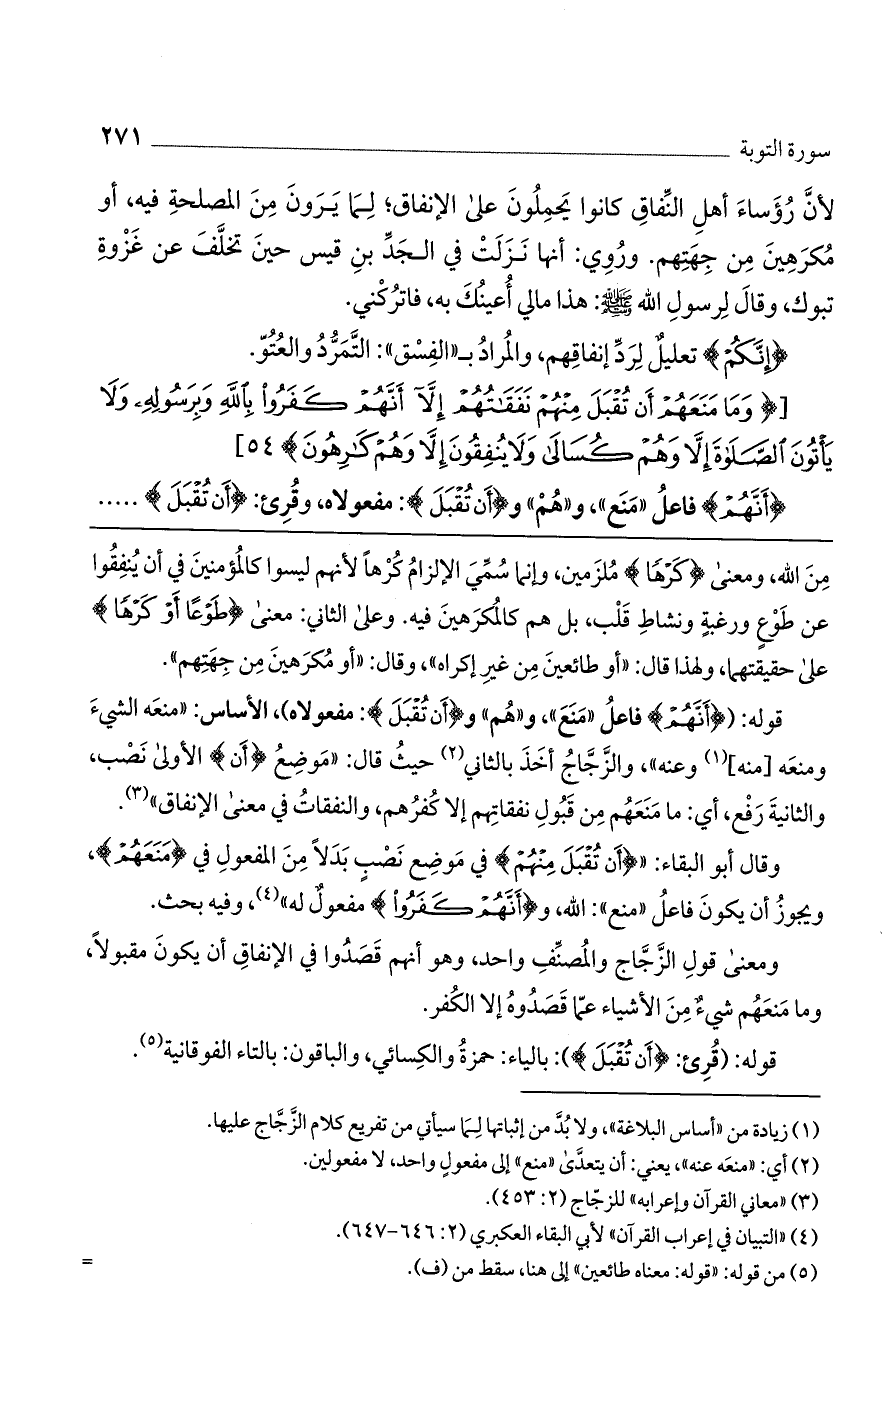 سورة التوبة ٢٧١
لأنَّ رُؤَساءَ أهلِ النِّفاقِ كانوا يَحمِلُونَ علىٰ الإنفاق؛ لِـمَا يَـرَونَ مِنَ المصلحةِ فيه، أو
مُكرَهِينَ مِن جِهَتِهم. ورُوِي: أنها نَـزَلَتْ في الـجَدِّ بنِ قيس حينَ تخلَّفَ عن غَزْوةِ
تبوك، وقالَ لِرسولِ الله ﷺ: هذا مالي أُعينُكَ به، فاترُكْني.
﴿إِنَّكُمْ﴾ تعليلٌ لِرَدِّ إنفاقِهم، والمُرادُ بـ«الفِسْق»: التَّمَرُّدُ والعُتُوّ.
[﴿ وَمَا مَنَعَهُمْ أَن تُقْبَلَ مِنْهُمْ نَفَقَـٰتُهُمْ إِلَّآ أَنَّهُمْ كَفَرُوا۟ بِٱللَّهِ وَبِرَسُولِهِۦ وَلَا
يَأْتُونَ ٱلصَّلَوٰةَ إِلَّا وَهُمْ كُسَالَىٰ وَلَا يُنفِقُونَ إِلَّا وَهُمْ كَـٰرِهُونَ ﴾ ٥٤]
﴿أَنَّهُمْ﴾ فاعلُ «مَنَع»، و«هُمْ» و﴿أَن تُقْبَلَ ﴾: مفعولاه، وقُرِئ: ﴿أَن تُقْبَلَ ﴾ .....
مِنَ الله، ومعنىٰ ﴿كَرْهًا ﴾ مُلزَمين، وإنما سُمِّيَ الإلزامُ كُرْهاً لأنهم ليسوا كالمُؤمنينَ في أن يُنفِقُوا
عن طَوْعٍ ورغبةٍ ونشاطِ قَلْب، بل هم كالمُكرَهينَ فيه. وعلىٰ الثاني: معنىٰ ﴿طَوْعًا أَوْ كَرْهًا ﴾
علىٰ حقيقتهما، ولهذا قال: «أو طائعينَ مِن غيرِ إكراه»، وقال: «أو مُكرَهينَ مِن جِهَتِهم».
قوله: (﴿أَنَّهُمْ﴾ فاعلُ «مَنَعَ»، و«هُم» و﴿أَن تُقْبَلَ ﴾: مفعولاه)، الأساس: «منعَه الشيءَ
ومنعَه [منه](١) وعنه»، والزَّجَّاجُ أخَذَ بالثاني(٢) حيثُ قال: «مَوضِعُ ﴿أَن﴾ الأولىٰ نَصْب،
والثانيةَ رَفْع، أي: ما مَنَعَهُم مِن قَبُولِ نفقاتِهم إلا كُفرُهم، والنفقاتُ في معنىٰ الإنفاق»(٣).
وقال أبو البقاء: «﴿أَن تُقْبَلَ مِنْهُمْ﴾ في مَوضِعِ نَصْبٍ بَدَلاً مِنَ المفعولِ في ﴿مَنَعَهُمْ﴾،
ويجوزُ أن يكونَ فاعلُ «منع»: الله، و﴿أَنَّهُمْ كَفَرُوا۟ ﴾ مفعولٌ له»(٤)، وفيه بحث.
ومعنىٰ قولِ الزَّجَّاج والمُصنِّفِ واحد، وهو أنهم قَصَدُوا في الإنفاقِ أن يكونَ مقبولاً،
وما مَنعَهُم شيءٌ مِنَ الأشياء عمّا قَصَدُوهُ إلا الكُفر.
قوله: (قُرِئ: ﴿أَن تُقْبَلَ ﴾): بالياء: حمزةُ والكِسائي، والباقون: بالتاء الفوقانية(٥).
(١) زيادة من «أساس البلاغة»، ولا بُدَّ من إثباتها لِـمَا سيأتي من تفريع كلام الزَّجَّاج عليها.
(٢) أي: «منعَه عنه»، يعني: أن يتعدَّىٰ «منع» إلى مفعولٍ واحد، لا مفعولين.
(٣) «معاني القرآن وإعرابه» للزجّاج (٢: ٤٥٣).
(٤) «التبيان في إعراب القرآن» لأبي البقاء العكبري (٢: ٦٤٦-٦٤٧).
(٥) من قوله: «قوله: معناه طائعين» إلى هنا، سقط من (ف). =